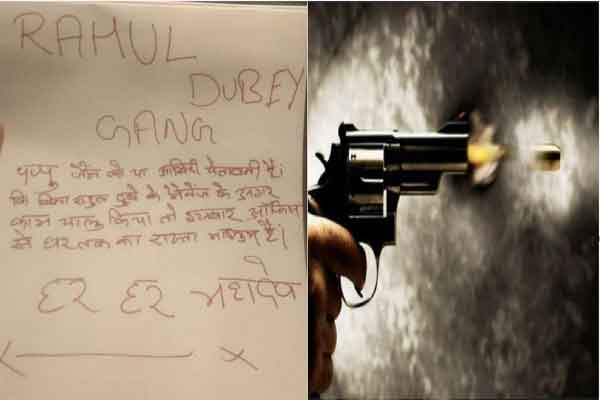 RAHUL
DUBEY
GANG
पप्पू जैन को या आखिरी चेतावनी है।
कि बिना राहुल दुबे के मेनेज के अगर
काम चालु किया तो ऑफिस
से घर तक का रास्ता है।
हर हर महादेव